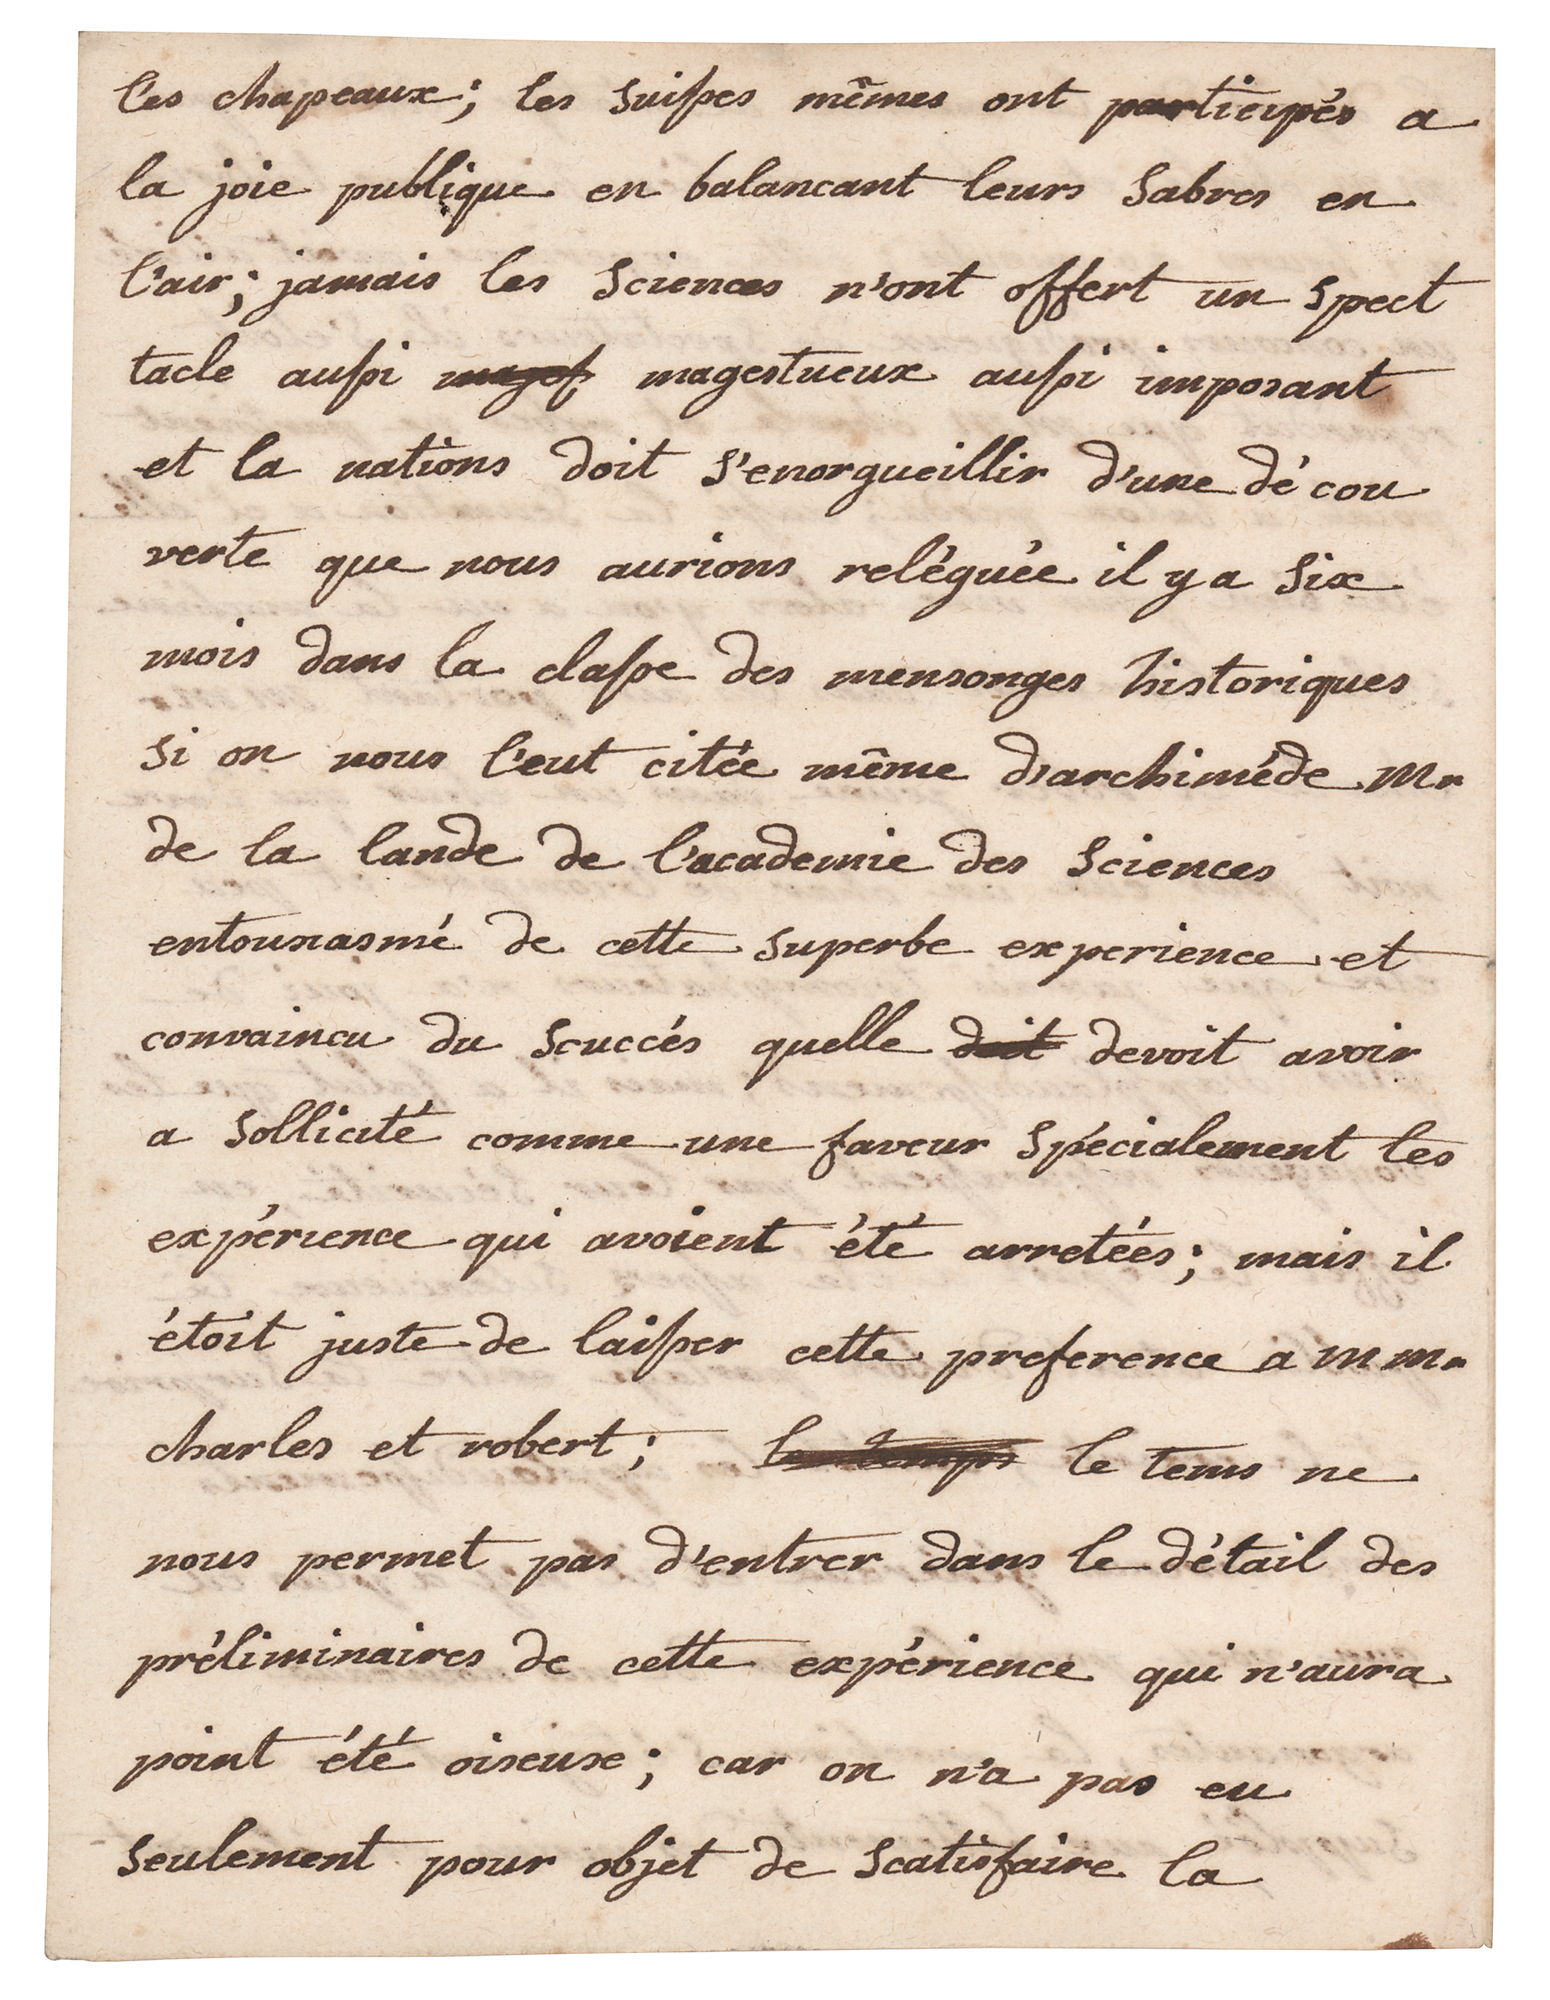 les chapeaux; les Suisses mêmes ont participés a
la joie publique en balancant leurs Sabres en
l'air; jamais les Sciences n'ont offert un Spect
tacle aussi magest magestueux aussi imposant
et la nations doit S'enorgueillir d'une dé cou
verte que nous aurions reléguée il y a Six
mois dans la classe des mensonges historiques
Si on nous l'eut citée même d'archiméde Mr
de la lande de l'academie des Sciences
entousiasmé de cette Superbe experience et
convaincu du Scuccés quelle doit devoit avoir
a Sollicité comme une faveur Spécialement les
expérience qui avoient été arretées; mais il
étoit juste de laisser cette preference a m mrs
charles et robert; le temps le tems ne
nous permet pas d'entrer dans le détail des
préliminaires de cette expérience qui n'aura
point été oiseuse; car on n'a pas eu
Seulement pour objet de Scatisfaire la